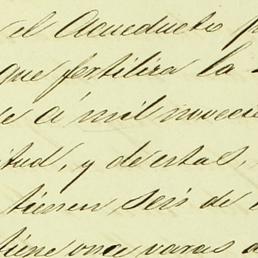 el Acueducto p
que fertiliza la
e á mil novecie
itud, y de estas,
tienen, seis de
tiene once varas